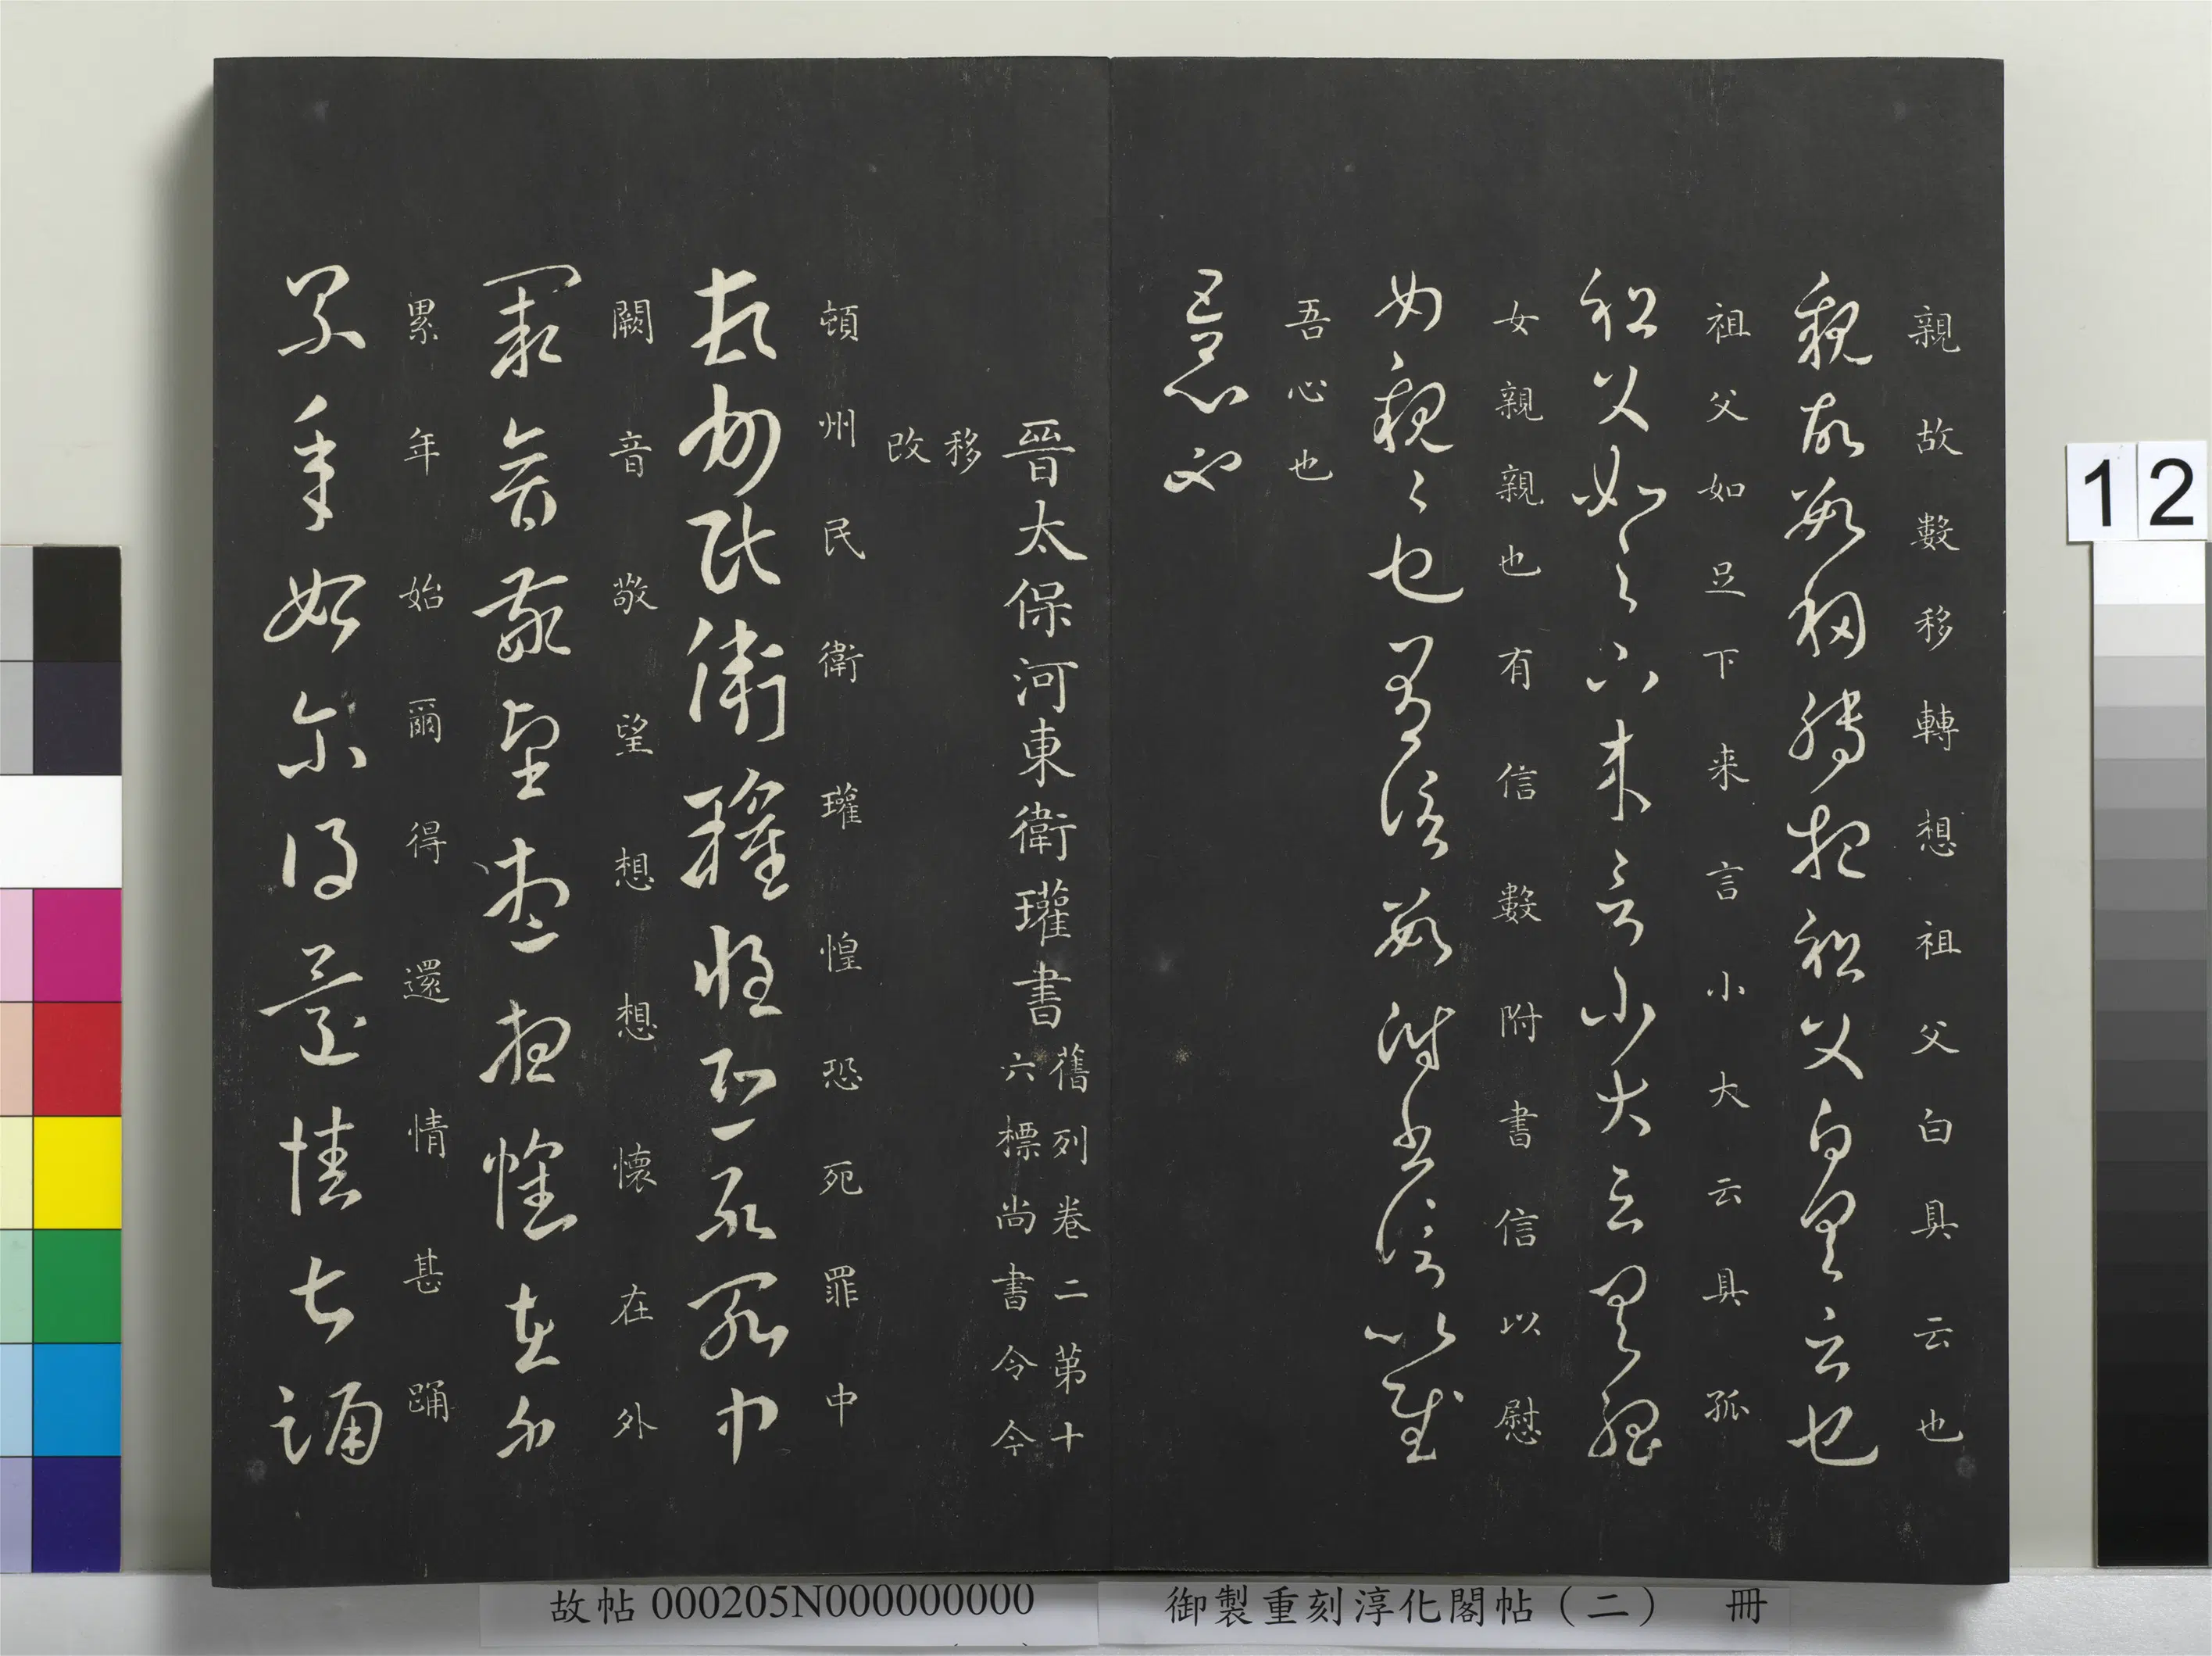 親故數移轉想祖父白具云也
親故數移轉想祖父白具云也
祖父如足下来言小大云具孤
祖父如足下来言小大云具孤
女親親也有信數附書信以慰
女親〻也有信數附書信以慰
吾心也
吾心也
晉太保河東衛瓘書
舊列卷二第十
六標尚書令今
移
改
頓州民衛瓘惶恐死罪中
頓州民衛瓘惶恐死罪中
闕音敬望想想懷在外
闕音敬望想想懷在外
累年始爾得還情甚踊
累年始尔得還情甚踊
12
御製重刻淳化閣帖（二） 冊
故帖 000205N000000000